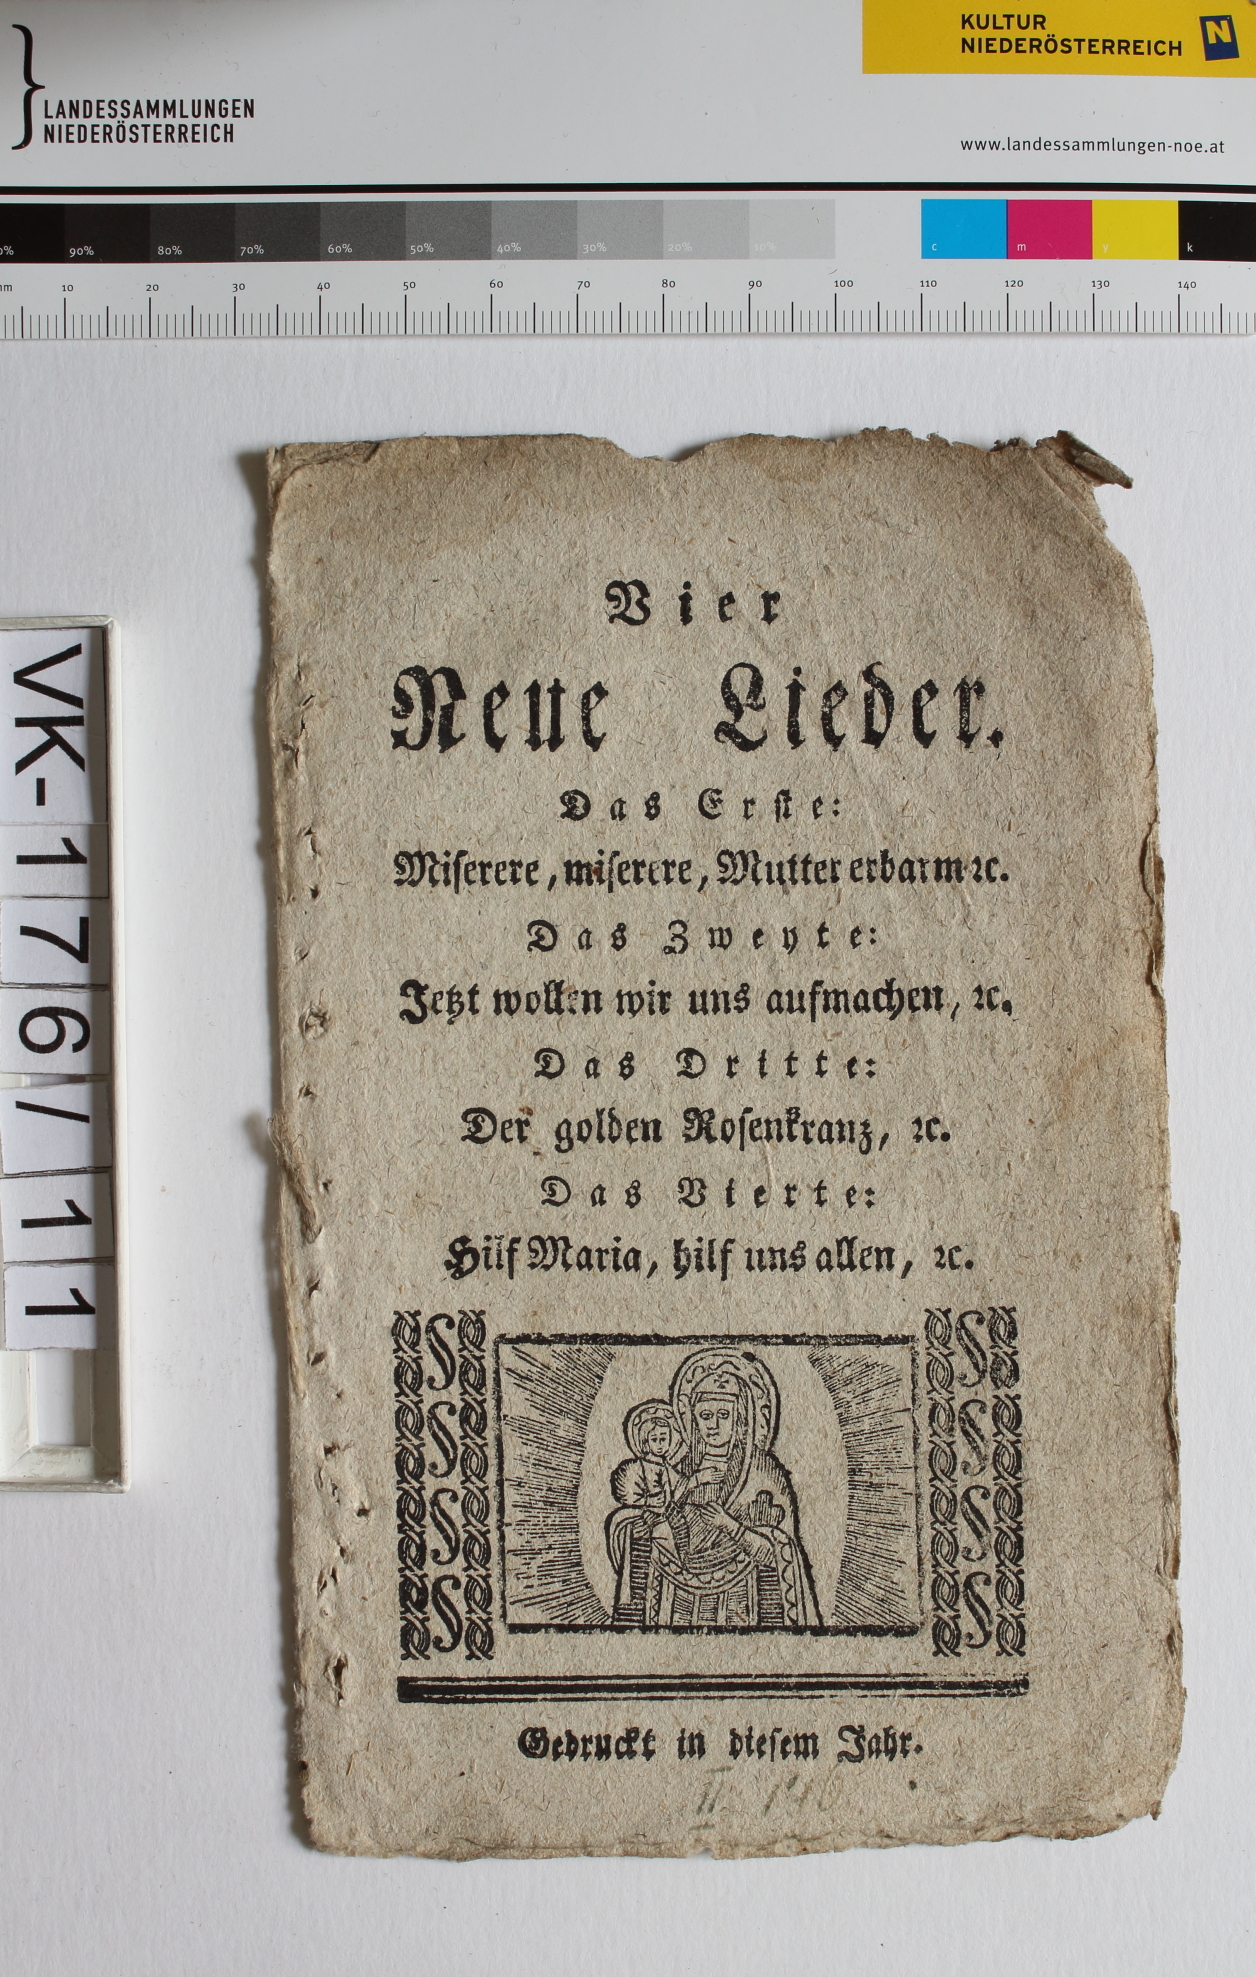 KULTUR
NIEDERÖSTERREICH
N
LANDESSAMMLUNGEN
NIEDERÖSTERREICH
www.landessammlungen-noe.at
90% 80% 70% 60% 50% 40% 30% 20% 10% c m y k
10 20 30 40 50 60 70 80 90 100 110 120 130 140
VK-176/11
Vier
Neue Lieder.
Das Erſte:
Miſerere, miſerere, Mutter erbarm ꝛc.
Das Zweyte:
Jetzt wollen wir uns aufmachen, ꝛc.
Das Dritte:
Der golden Roſenkranz, ꝛc.
Das Vierte:
Hilf Maria, hilf uns allen, ꝛc.
§ §
§ §
§ §
§ §
Gedruckt in dieſem Jahr.